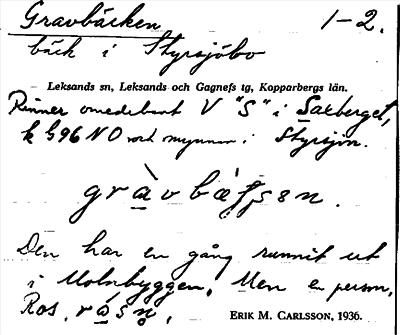 Gravbäcken 1-2.
bäck i Styrsjöbo
Leksands sn, Leksands och Gagnefs tg, Kopparbergs län.
Rinner omedelbart V "S" i Saxberget,
k 596 NO och mynnar i Styrsjön.
Den har en gång runnit ut
i Molnbyggen. Men en person,
Ros,
ERIK M. CARLSSON, 1936.